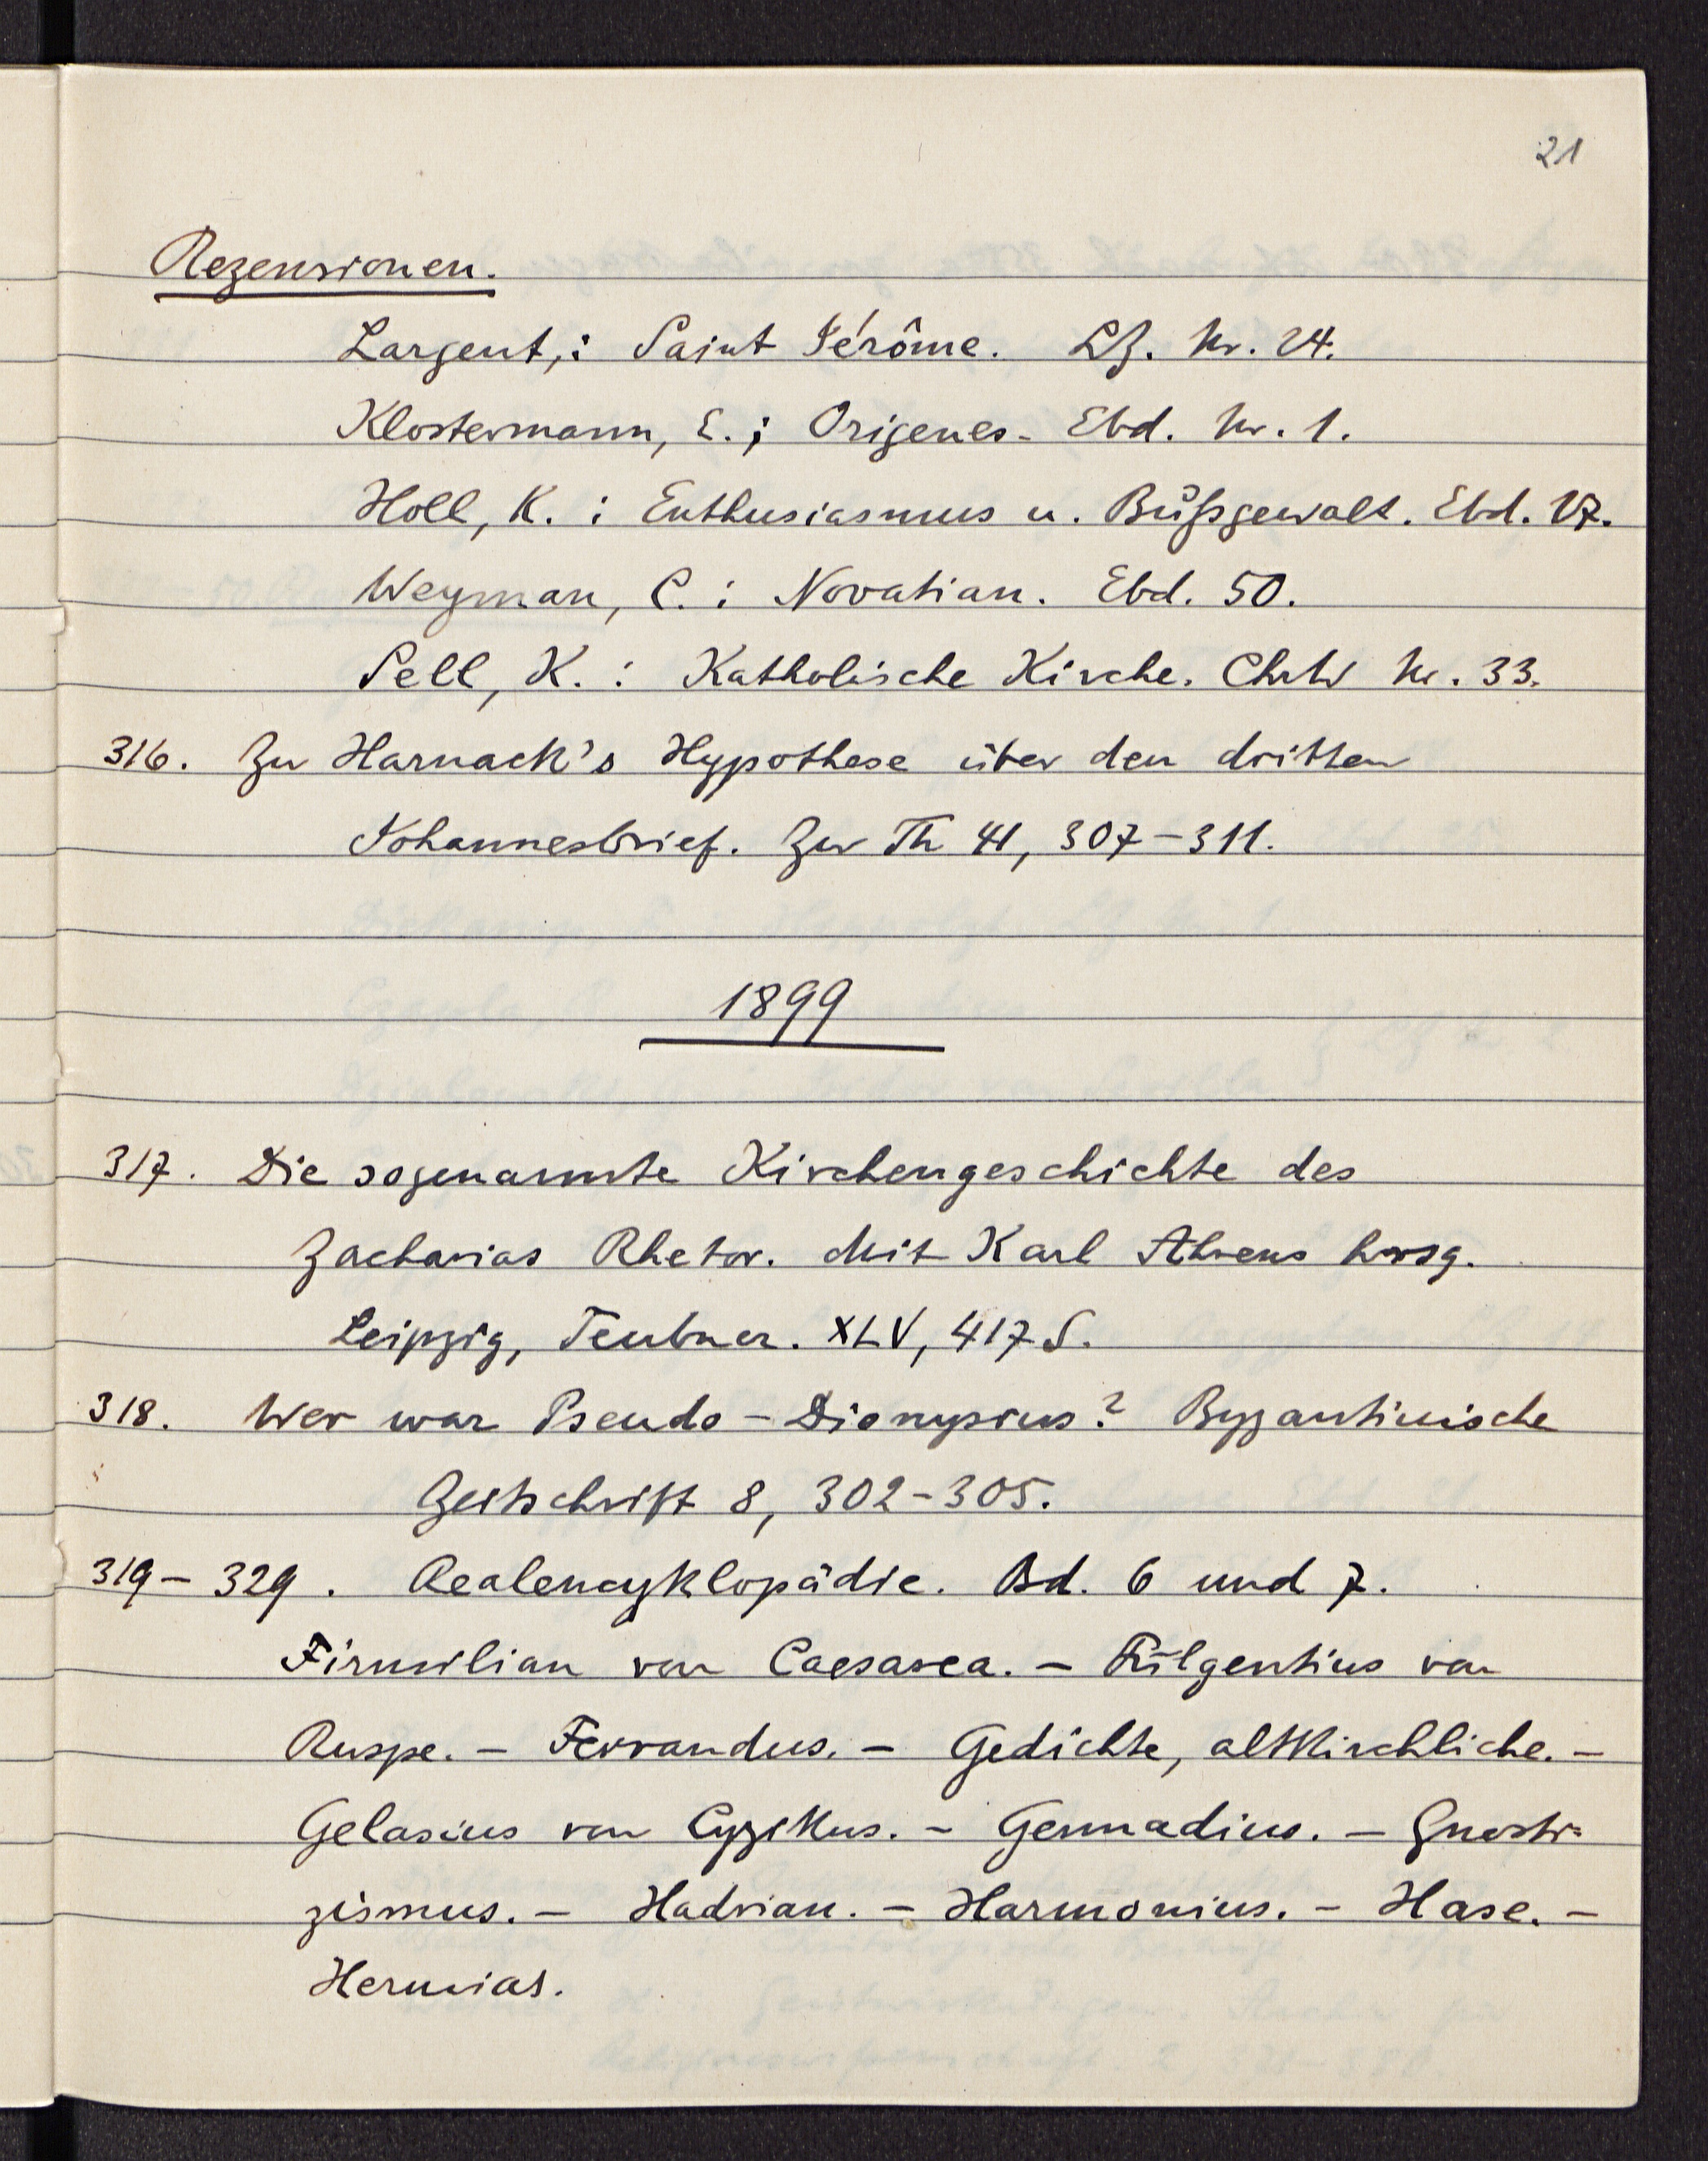 21
Rezensionen.
Largent,: Saint Jérôme. LZ. Nr. 24.
Klostermann, E.; Origenes. Ebd. Nr. 1.
Holl, K.: Enthusiasmus u. Bußgewalt. Ebd. 17.
Weyman, C.: Novatian. Ebd. 50.
Sell, K.: Katholische Kirche. ChrW Nr. 33.
316. Zu Harnack's Hypothese über den dritten
Johannesbrief. ZwTh 41, 307-311.
1899
317. Die sogenannte Kirchengeschichte des
Zacharias Rhetor. Mit Karl Ahrens hrsg.
Leipzig, Teubner. XLV, 417 S.
318. Wer war Pseudo-Dionysius? Byzantinische
Zeitschrift 8, 302-305.
319-329. Realencyklopädie. Bd. 6 und 7.
Firmilian von Caesarea. - Fulgentius von
Ruspe. - Ferrandus. - Gedichte, altkirchliche. -
Gelasius von Cyzikus. - Gennadius. - Gnosti-
zismus. - Hadrian. - Harmonius. - Hase. -
Hermias.